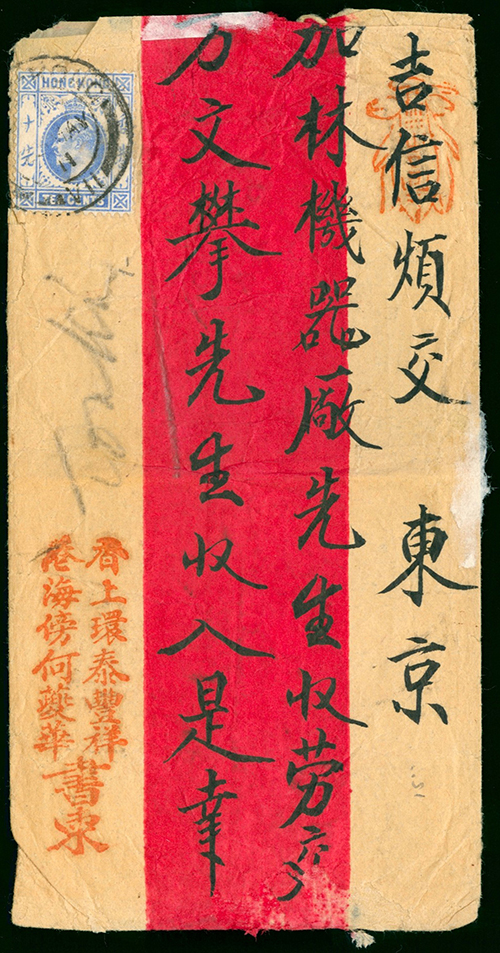 吉信煩交 東京
加林機器廠先生収勞交
方文攀先生収入是幸
HONG KONG
十先
TEN CENTS
香上環泰豐祥
港海傍何華
書柬